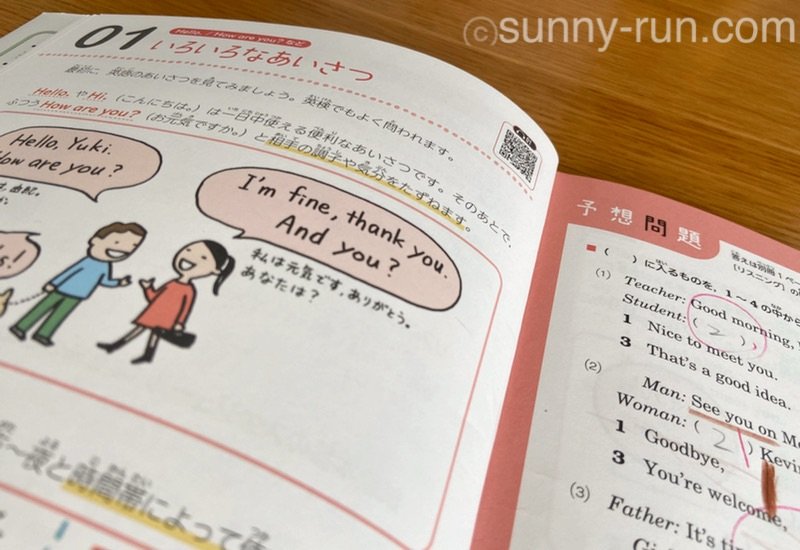 ©sunny-run.com
Hello. / How are you? など
01 いろいろなあいさつ
最初に 英語のあいさつを見てみましょう。英検でもよく問われます。
Hello. や Hi. (こんにちは。) は一日中使える便利なあいさつです。そのあとで、
ふつう How are you? (お元気ですか。) と相手の調子や気分をたずねます。
Hello, Yuki.
How are you?
I'm fine, thank you.
And you?
私は元気です、ありがとう。
あなたは?
夜と時間帯によって
予想問題
答えは別冊1ペー
(リスニング) の
( ) に入るものを、1〜4の中か
(1)
Teacher: Good morning,
Student: ( 2 )
1 Nice to meet you.
3 That's a good idea.
(2)
Man: See you on
Woman: ( 2 ) Kevin
1 Goodbye,
3 You're welcome,
(3)
Father: It's